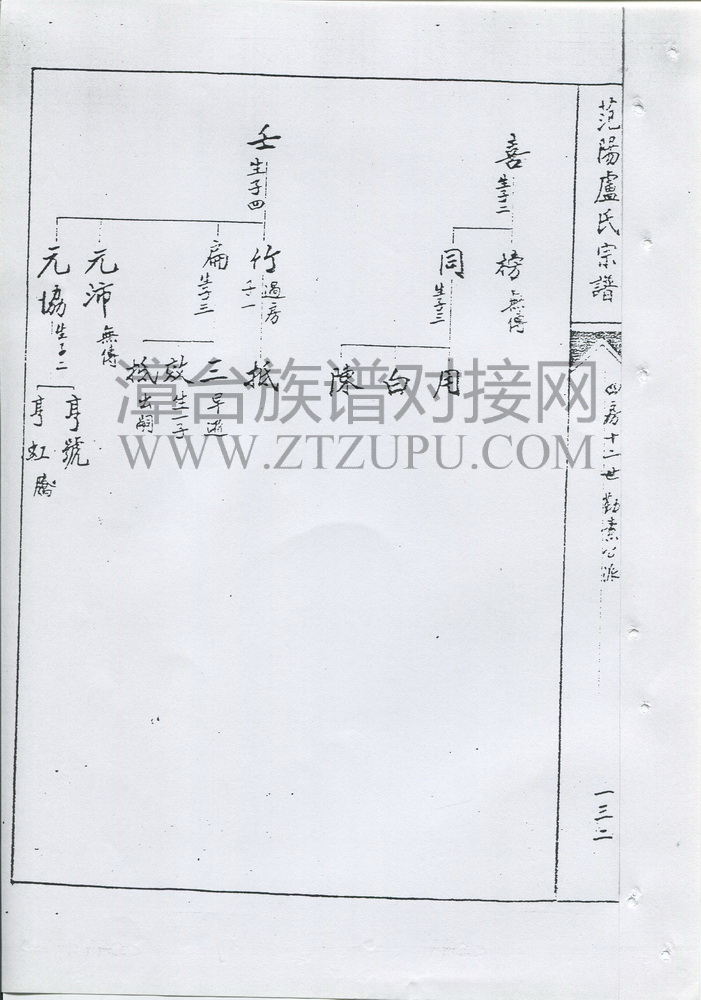 范陽盧氏宗譜
四房十二世勤素公派
一三二
喜
生子二
榜
無傳
同
生子三
用
白
陳
壬
生子四
竹
過房
子一
抵
扁
生子三
三
早逝
效
生一子
抵
出嗣
元沛
無傳
元協
生子二
亨號
亨虹
漳台族谱对接网
WWW.ZTZUPU.COM